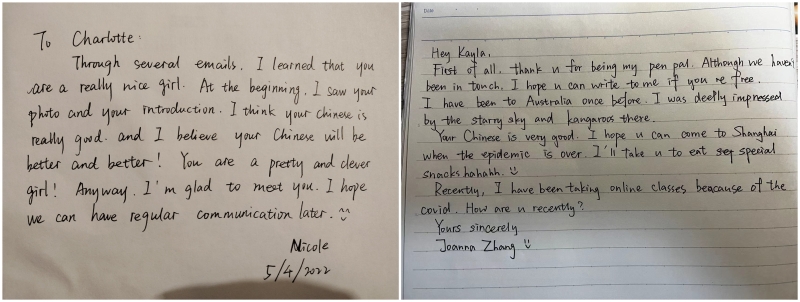 To Charlotte:
Through several emails. I learned that you
are a really nice girl. At the beginning. I saw your
photo and your introduction. I think your chinese is
really good. and I believe your Chinese will be
better and better! You are a pretty and clever
girl! Anyway. I'm glad to meet you. I hope
we can have regular communication later. ^^
Nicole
5/4/2022
Date
Hey Kayla,
First of all, thank u for being my pen pal. Although we haven't
been in touch. I hope u can write to me if you re free.
I have been to Australia once before. I was deeply impressed
by the starry sky and kangaroos there.
Your Chinese is very good. I hope u can come to Shanghai
when the epidemic is over. I'll take u to eat special
snacks hahahh.
Recently, I have been taking online classes beacause of the
covid. How are u recently?
Yours sincerely
Joanna Zhang